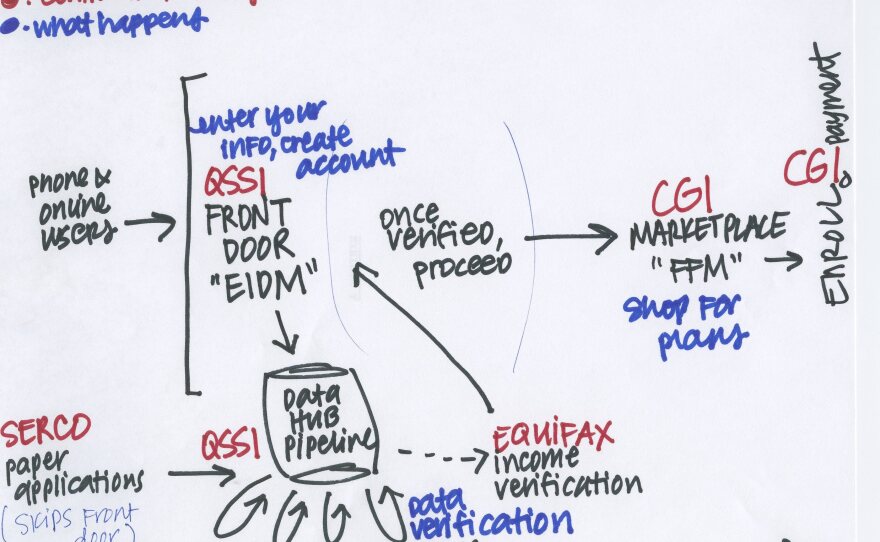 • what happens
enter your
info, create
account
QSSI
FRONT
DOOR
"EIDM"
phone &
online
users
once
verified,
proceed
CGI
MARKETPLACE
"FFM"
shop for
plans
CGI
ENROLL & payment
SERCO
paper
applications
(skips front
door)
QSSI
DATA
HUB
pipeline
EQUIFAX
income
verification
DATA
verification